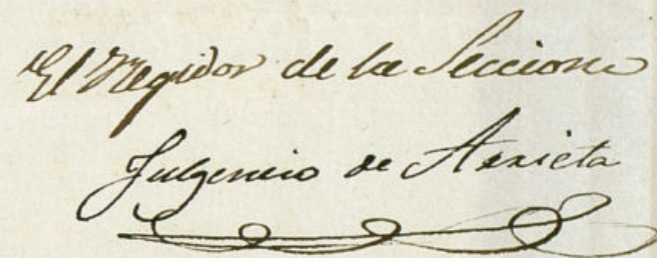 El Regidor de la Seccion
Fulgencio de Arrieta